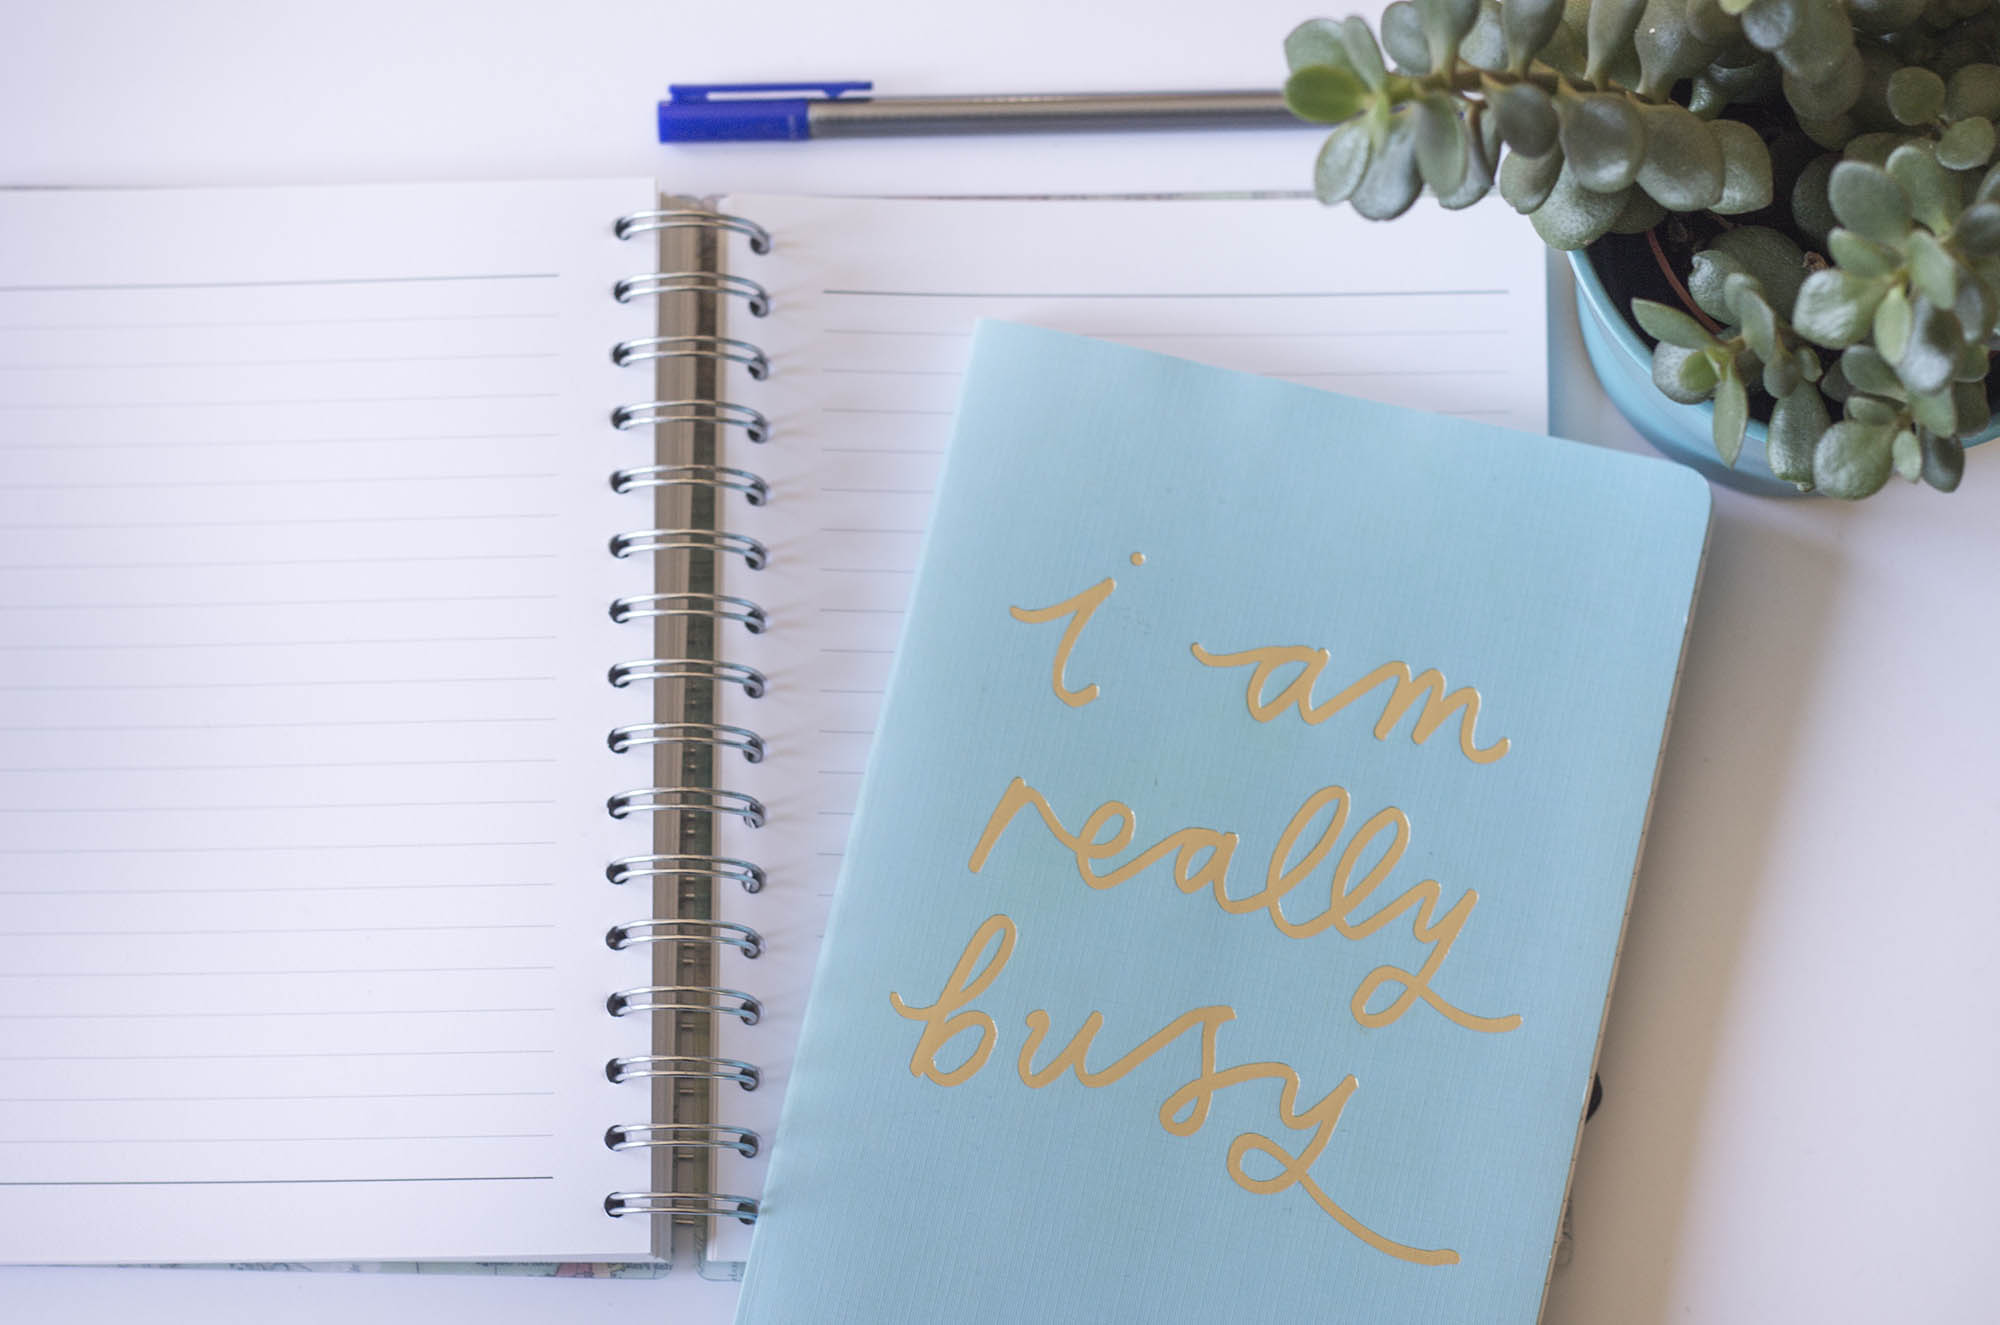 i am
really
busy